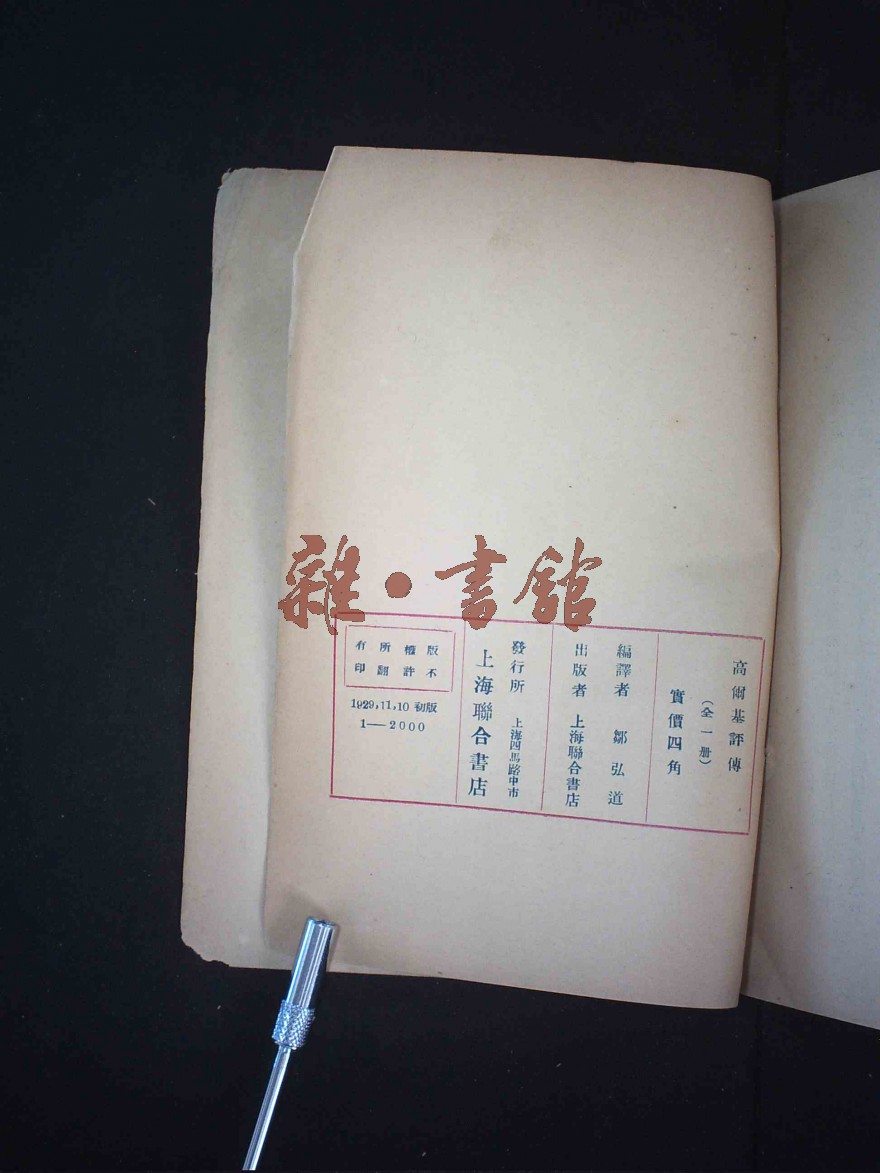 雜·書館
高爾基評傳
（全一册）
實價四角
編譯者 鄒弘道
出版者 上海聯合書店
發行所 上海四馬路中市
上海聯合書店
版權所有
不許翻印
1929,11,10 初版
1—2000